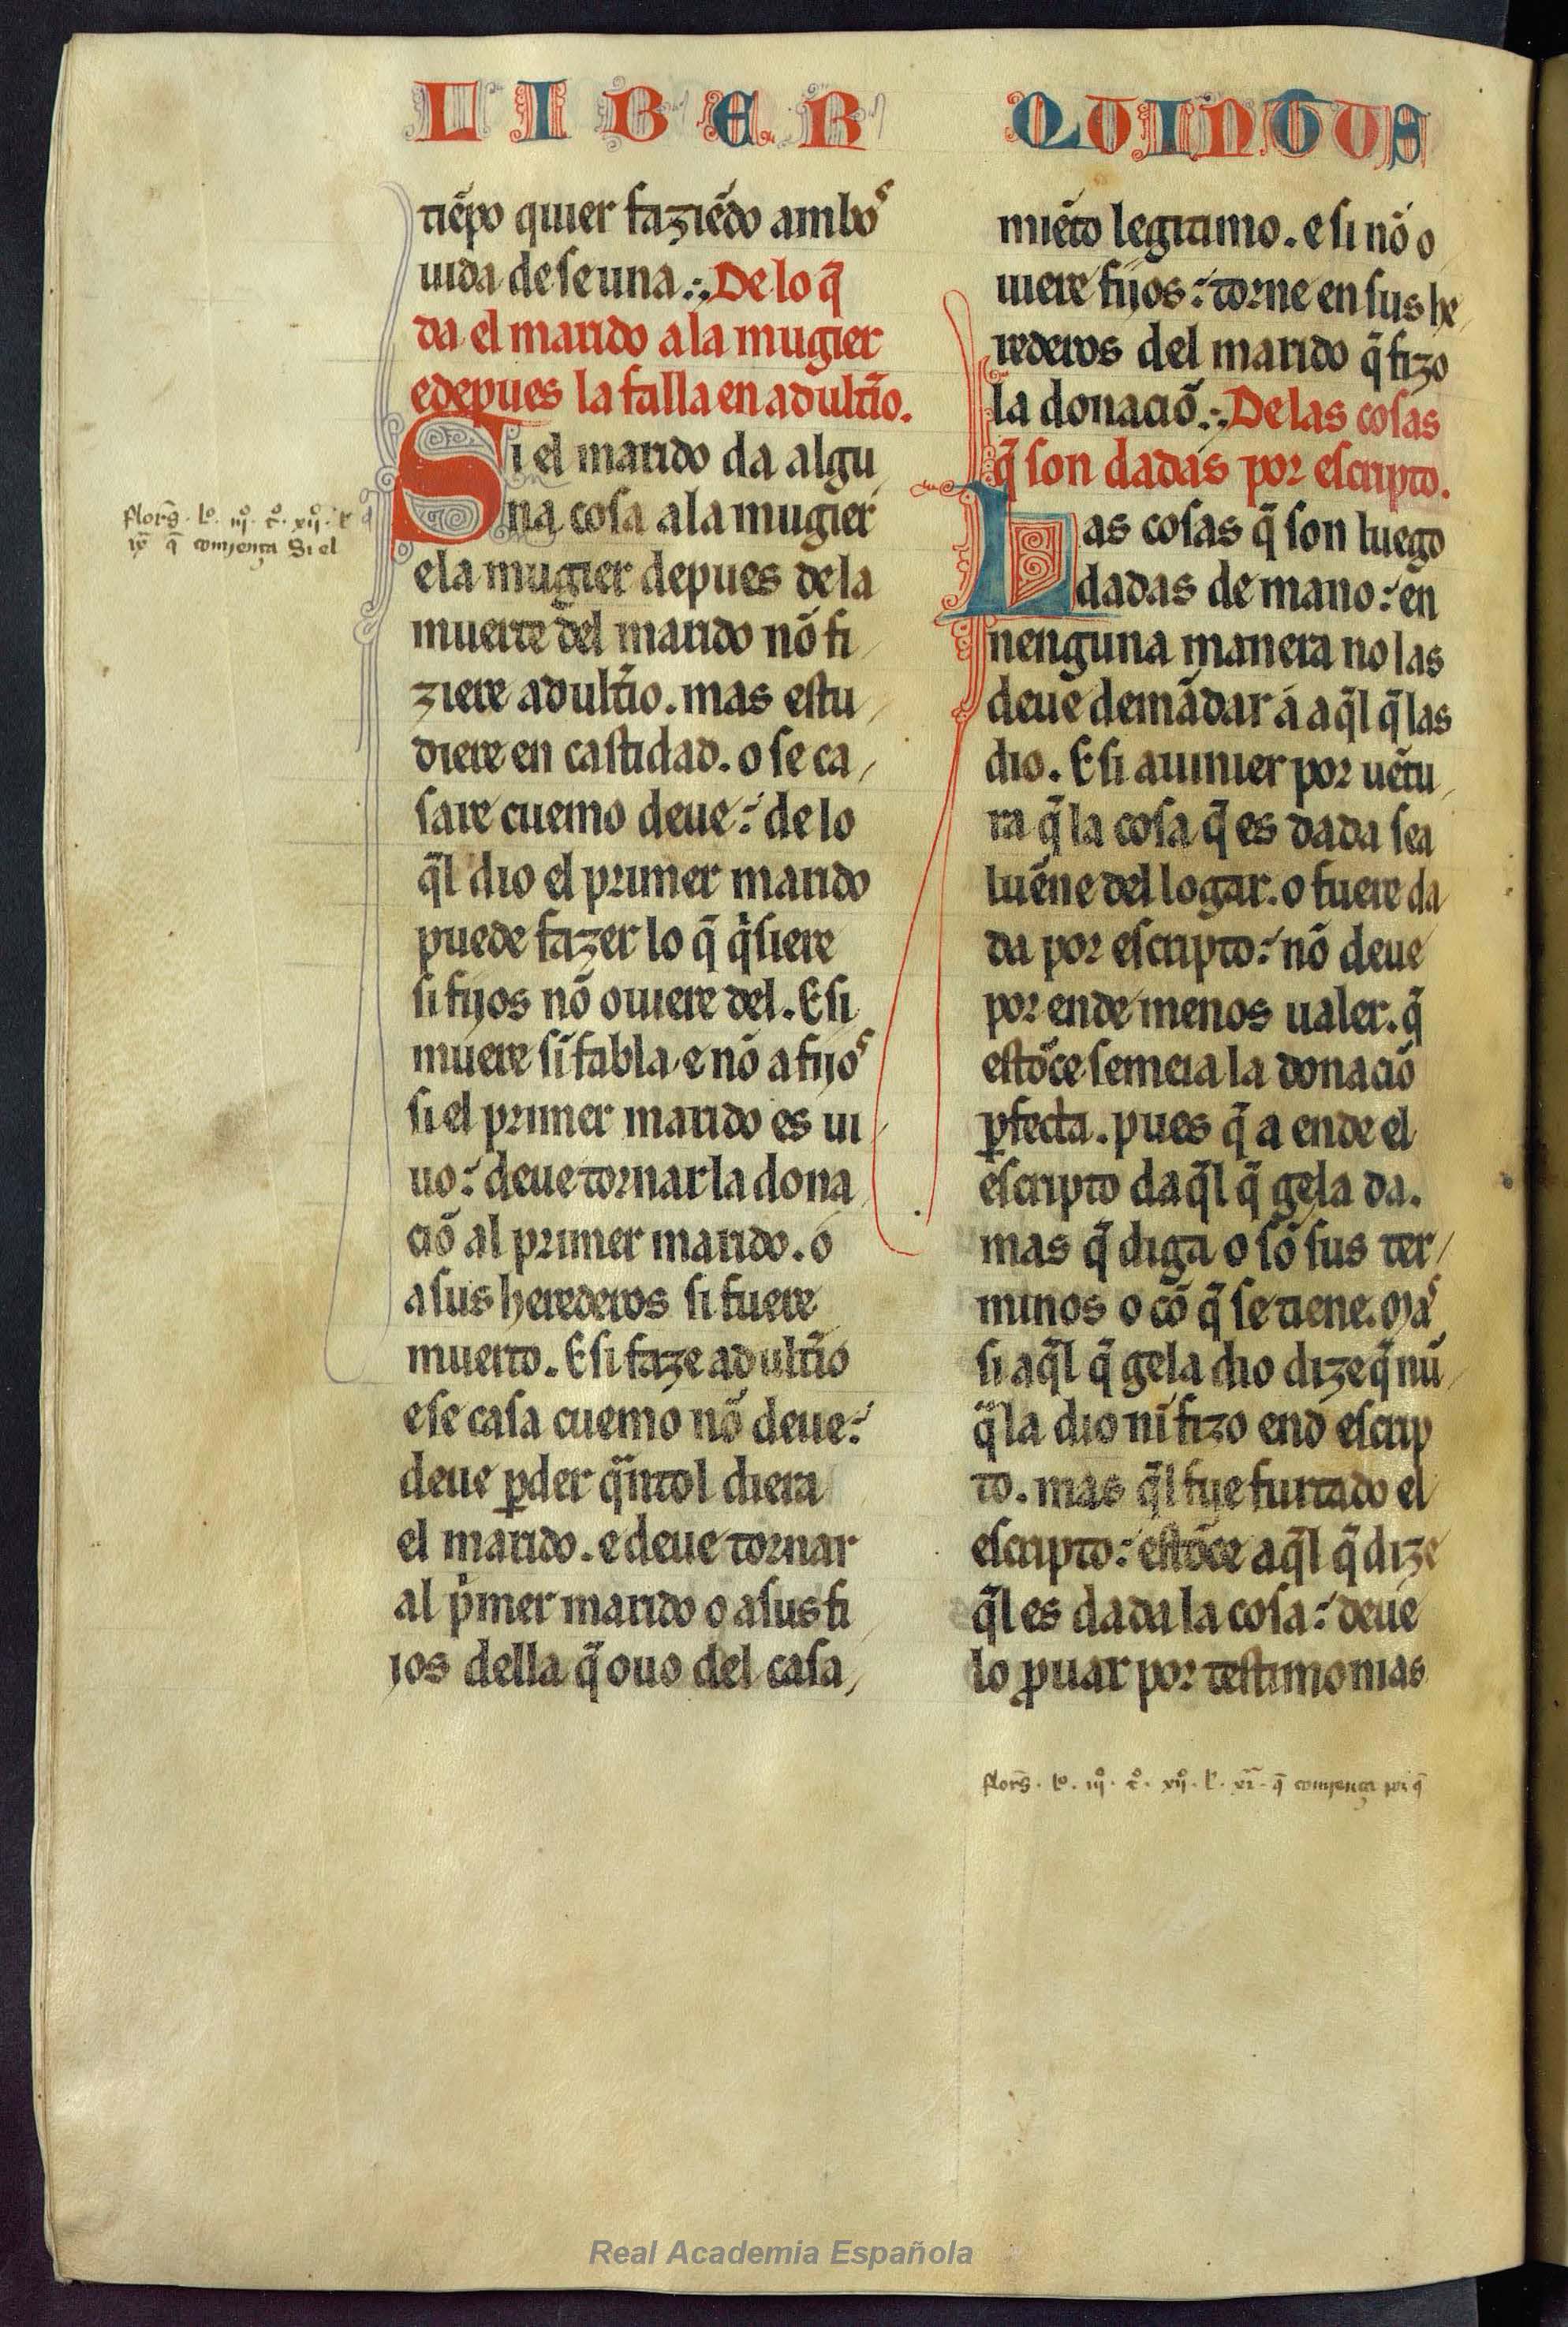 LIBER QUINTUS
tiẽpo quier faziẽdo ambos
uida de ſe una. De lo q̃
da el marido a la mugier
e depues la falla en adultĩo.
Si el marido da algu
na coſa a la mugier
e la mugier depues de la
muerte del marido nõ fi
ziere adultĩo. mas eſtu
diere en caſtidad. o ſe ca
ſare cuemo deue: de lo
q̃l dio el primer marido
puede fazer lo q̃ q̃ſiere
ſi fijos nõ ouiere del. E ſi
muere ſĩ fabla e nõ a fijos
ſi el primer marido es ui
uo: deue tornar la dona
ciõ al primer marido. o
a ſus herederos ſi fuere
muerto. E ſi faze adultĩo
e ſe caſa cuemo nõ deue:
deue ꝑder q̃ntol diera
el marido. e deue tornar
al p̃mer marido o a ſus fi
ios della q̃ ouo del caſa
miẽto legitimo. e ſi nõ o
uiere fijos: torne en ſus he
rederos del marido q̃ fizo
la donaciõ. De las coſas
q̃ ſon dadas por eſcripto.
Las coſas q̃ ſon luego
dadas de mano: en
nenguna manera no las
deue demãdar a aq̃l q̃ las
dio. E ſi auinier por uẽtu
ra q̃ la coſa q̃ es dada ſea
luẽne del logar. o fuere da
da por eſcripto: nõ deue
por ende menos ualer. q̃
eſtõce ſemeia la donaciõ
ꝑfecta. pues q̃ a ende el
eſcripto daq̃l q̃ gela da.
mas q̃ diga o ſõ ſus ter
minos o cõ q̃ ſe tiene. Mas
ſi aq̃l q̃ gela dio dize q̃ nũ
q̃ la dio nĩ fizo end eſcrip
to. mas q̃l fue furtado el
eſcripto: eſtõce aq̃l q̃ dize
q̃l es dada la coſa: deue
lo ꝓuar por teſtimonias
flors̃. lo. iijo. to. xijo. l
ix q̃ comjença Si el
flors̃. lo. iijo. to. xijo. l. xi. q̃ comjença por q̃
Real Academia Española